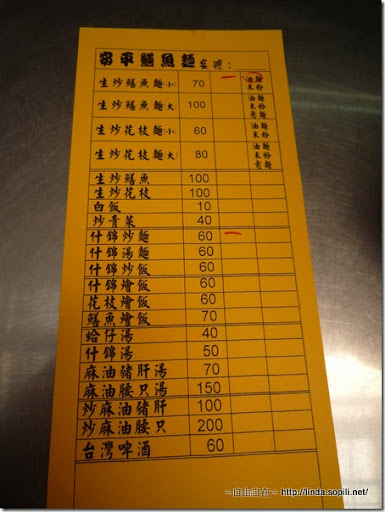 安平鱔魚麵 桌號：
生炒鱔魚麵小 70 油麵 米粉
生炒鱔魚麵大 100 油麵 米粉 意麵
生炒花枝麵小 60 油麵 米粉
生炒花枝麵大 80 油麵 米粉 意麵
生炒鱔魚 100
生炒花枝 100
白飯 10
炒青菜 40
什錦炒麵 60
什錦湯麵 60
什錦炒飯 60
什錦燴飯 60
花枝燴飯 60
鱔魚燴飯 70
蛤仔湯 40
什錦湯 50
麻油豬肝湯 70
麻油腰只湯 150
炒麻油豬肝 100
炒麻油腰只 200
台灣啤酒 60
~自由自在~ http://linda.sopili.net/